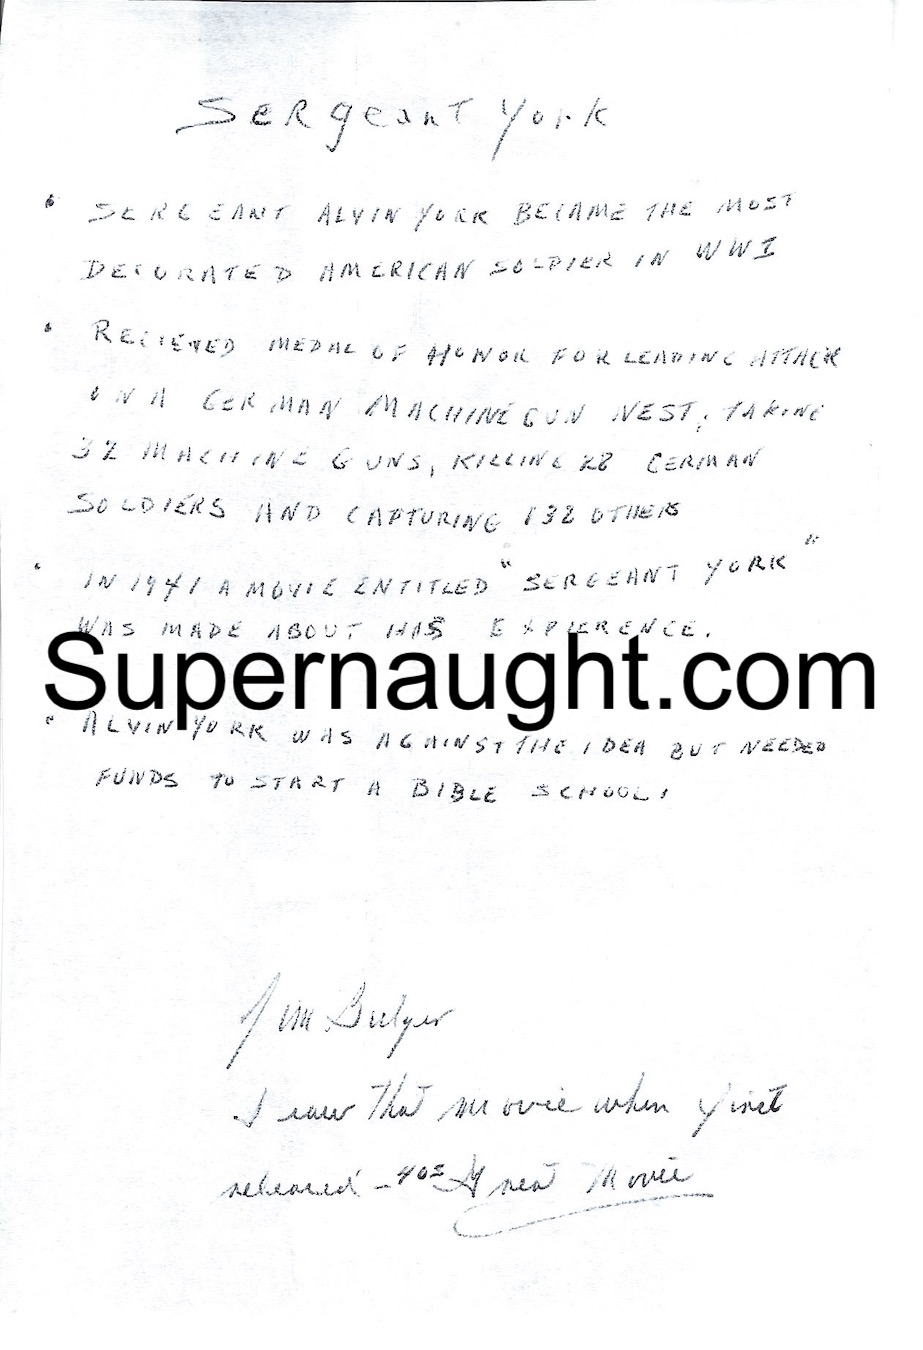 Sergeant York
• SERGEANT ALVIN YORK BECAME THE MOST
DECORATED AMERICAN SOLDIER IN WWI
• RECIEVED MEDAL OF HONOR FOR LEADING ATTACK
ON A GERMAN MACHINE GUN NEST, TAKING
32 MACHINE GUNS, KILLING 28 GERMAN
SOLDIERS AND CAPTURING 132 OTHERS
• IN 1941 A MOVIE ENTITLED "SERGEANT YORK"
WAS MADE ABOUT HIS EXPIERENCE.
Supernaught.com
• ALVIN YORK WAS AGAINST THE IDEA BUT NEEDED
FUNDS TO START A BIBLE SCHOOL!
Jim Bulger
I saw that movie when first
released - 40s Great Movie